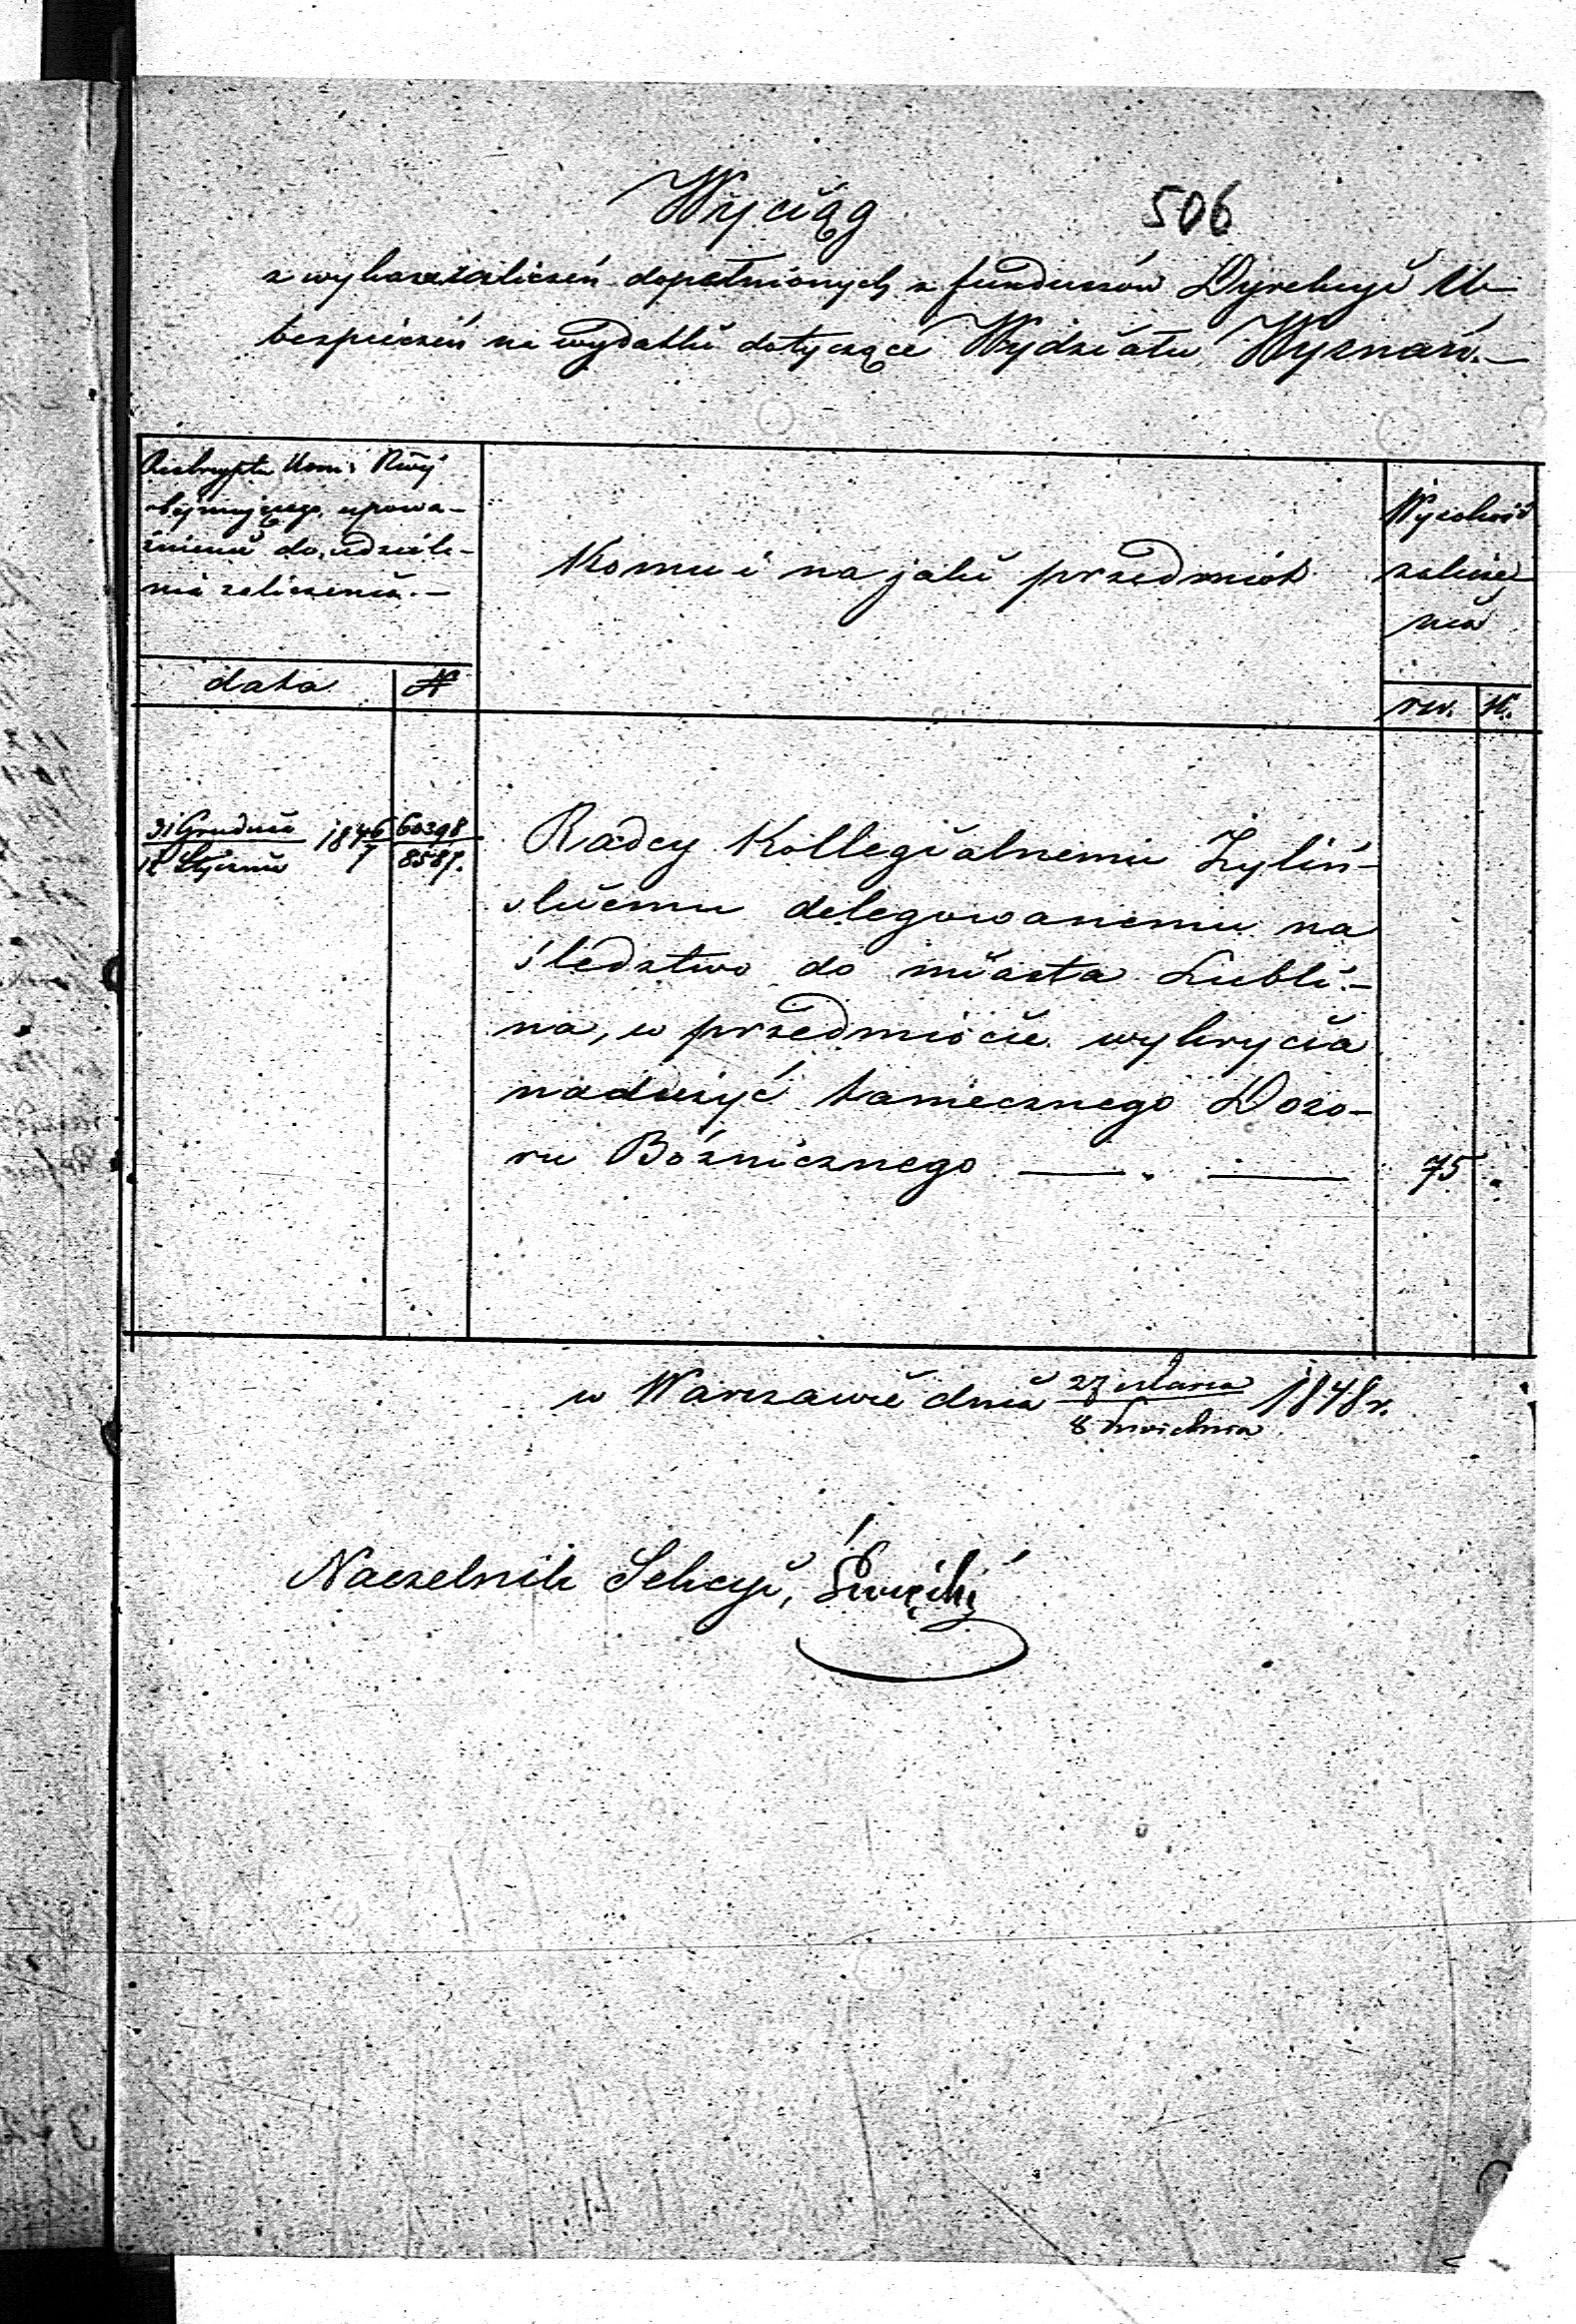 Wyciąg 506
z wykazu zaliczeń dopełnionych z funduszów Dyrekcyi U-
bezpieczeń na wydatki dotyczące Wydziału Wyznań.—
Reskryptu Kom: Rząd
obejmującego upowa-
żnienie do udziele-
nia zaliczenia.—
Komu i na jaki przedmiot
Wysokość
zalicze
nia
data №
rsr. K.
31 Grudnia 1846 60398
12 Stycznia 7 8587.
Radcy Kollegialnemu Zyliń-
skiemu delegowanemu na
śledztwo do miasta Lubli-
na, w przedmiocie wykrycia
nadużyć tamecznego Dozo-
ru Bóżnicznego —— . —— 75 .
w Warszawie dnia 27 Marca 1848 r.
8 Kwietnia
Naczelnik Sekcyi, Święcki